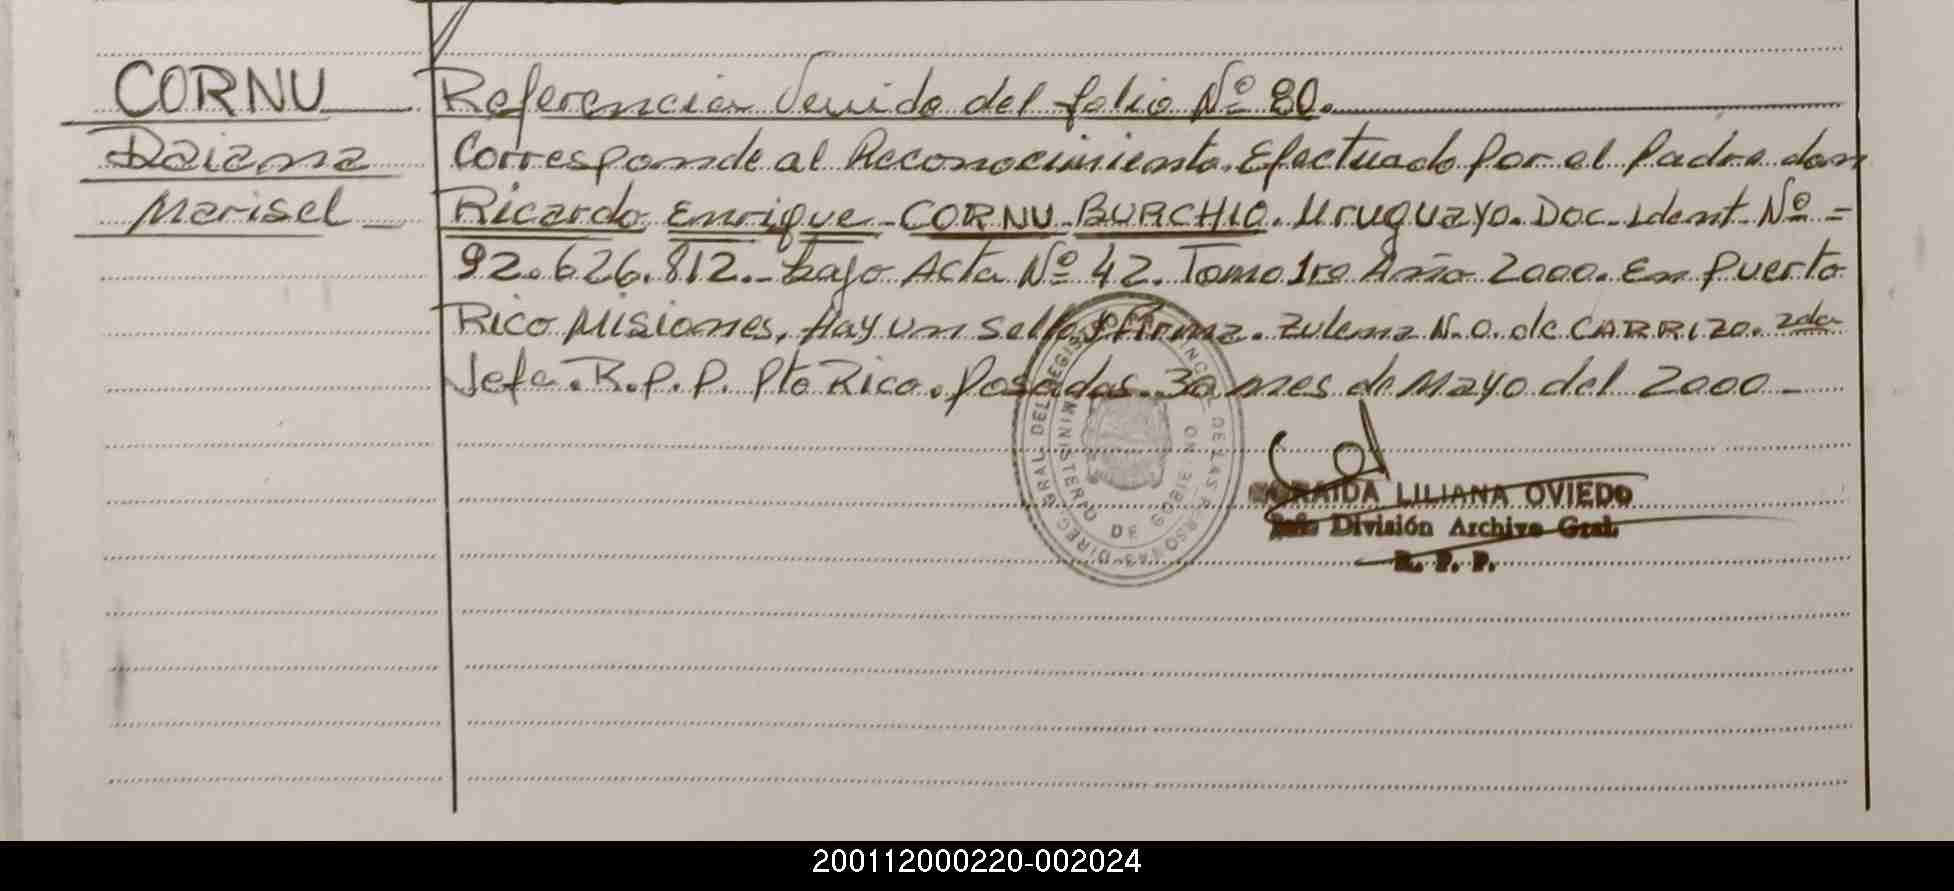 CORNU
Daiana
Marisel
Referencia Venida del folio Nº 80.
Corresponde al Reconocimiento Efectuado Por el Padre don
Ricardo Enrique CORNU BURCHIO. Uruguayo. Doc. Ident. Nº =
92.626.812.- bajo Acta Nº 42. Tomo 1ro Año 2000. En Puerto
Rico Misiones, Hay un sello y firma. Zulema N.O. de CARRIZO. 2da
Jefa. R.P.P. Pto Rico. Posadas. 30 mes de Mayo del 2000 -
DIREC. GRAL. DEL REGISTRO PROVINCIAL DE LAS PERSONAS
MINISTERIO DE GOBIERNO
LILIANA OVIEDO
Jefe División Archivo Gral.
R. P. P.
200112000220-002024